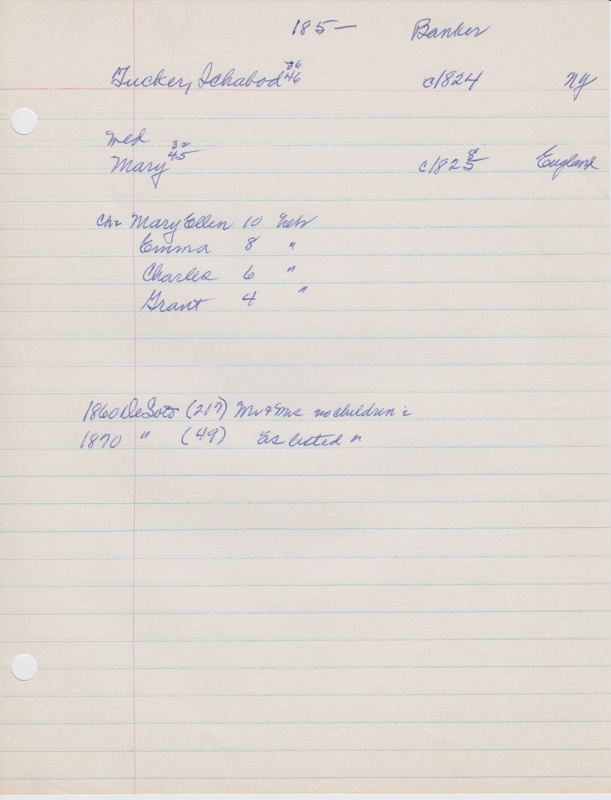 185— Banker
Tucker, Ichabod 36 46 c1824 NY
Med
Mary 32 45 c1825 8 England
Chr Mary Ellen 10 Neb
Emma 8 "
Charles 6 "
Grant 4 "
1860 DeSoto (217) Mr & Mrs no children
1870 " (49) As listed "